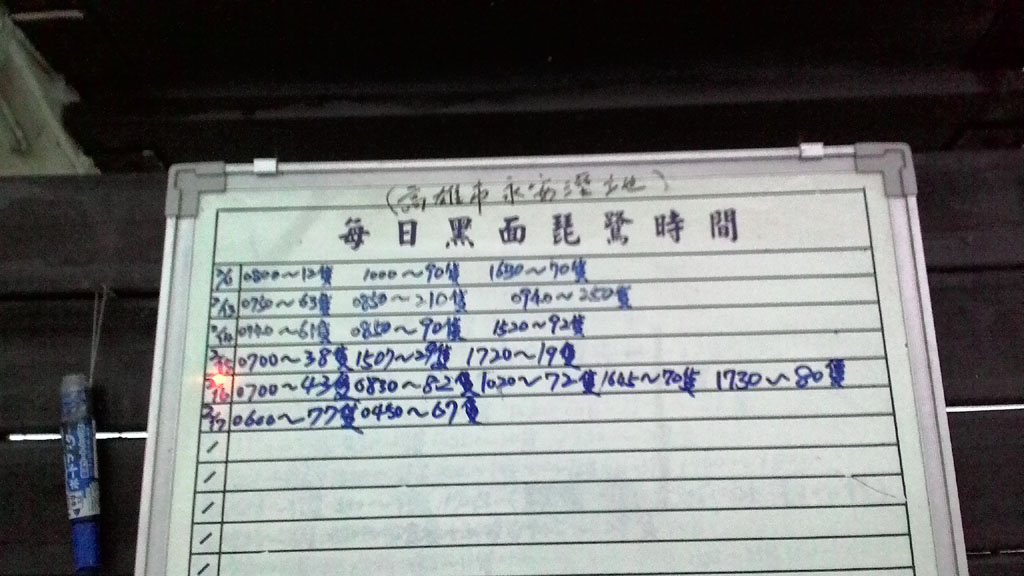 (高雄市永安溼地)
每日黑面琵鷺時間
0800～12隻 1000～90隻 1630～70隻
2/13 0750～63隻 0850～210隻 0940～250隻
2/14 0740～61隻 0850～90隻 1520～92隻
2/15 0700～38隻 1507～29隻 1720～19隻
2/16 0700～43隻 0830～82隻 1020～72隻 1645～70隻 1730～80隻
2/17 0600～77隻 0450～67隻